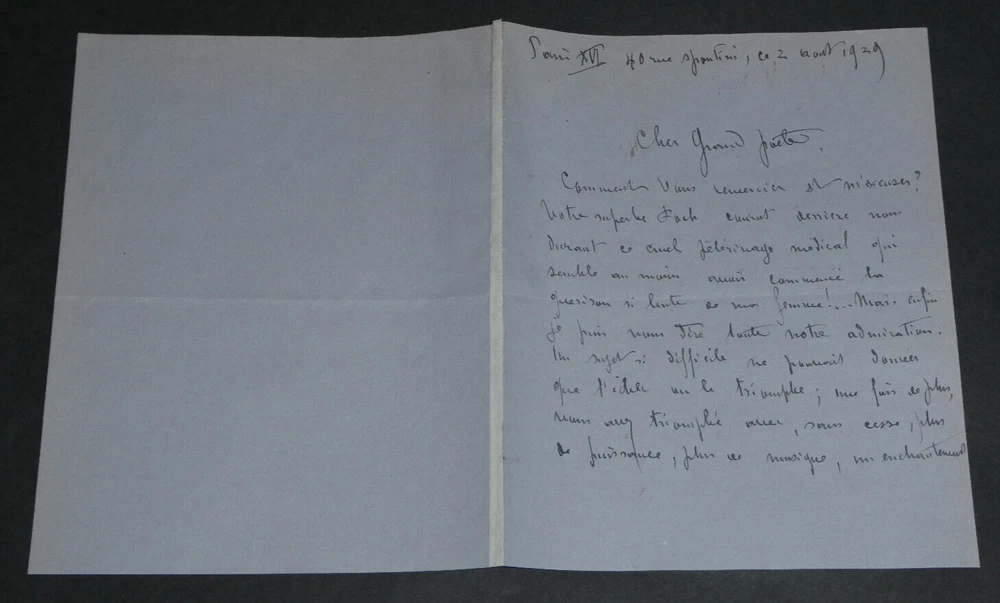 Paris XVI 40 rue Spontini, ce 2 août 1929
Cher Grand poète,
Comment vous remercier et m'excuser?
Votre superbe Foch courut derrière nous
durant ce cruel pèlerinage médical qui
semble au moins avoir commencé la
guérison si lente de ma femme!... Mais enfin
je puis vous dire toute notre admiration.
Un sujet si difficile ne pouvait donner
que l'échec ou le triomphe; une fois de plus,
vous avez triomphé avec, sans cesse, plus
de puissance, plus de musique, un enchantement